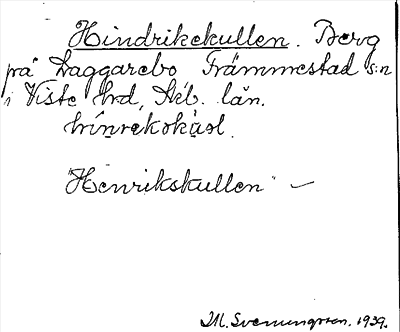 Hindrikekullen. Berg
på Laggarebo Främmestad s:n
i Viste hrd, Skb. län.
hinrekokàol.
"Henrikskullen" –
M. Svenungsson. 1939.